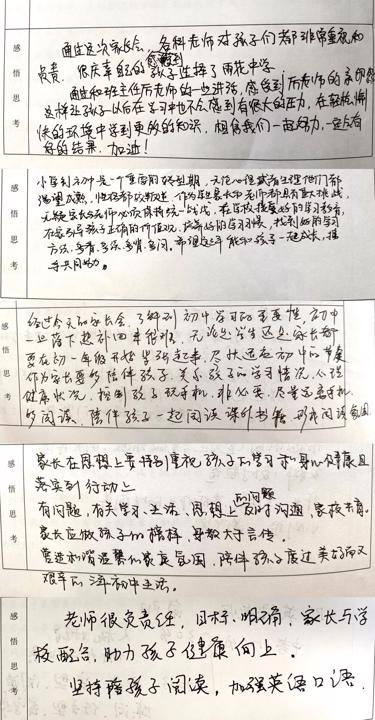 感悟思考
通过这次家长会，各科老师对孩子们都非常重视和
负责，很庆幸自己的孩子选择了雨花中学。
通过和班主任厉老师的一些讲话，感受到厉老师的
这样让孩子以后在学习中也不会感到有很大的压力，在轻松愉
快的环境中学到更多的知识，相信我们一起努力，一定会有
好的结果，加油！
感悟思考
小学到初中是一个重要的转折期，无论心理或者生理他们都
渴望成熟，
无疑家长与老师必须保持统一战线，在学校接受好的学习教育，
在家引导孩子正确的价值观，培养好的学习习惯，找到好的学习
方法，多看，多练，多背，多问。希望这三年能和孩子一起成长，
共同努力。
感悟思考
经过今天的家长会，了解到初中学习的重要性，初中
一旦落下想补回来很难，无论学生还是家长都
要在初一年级开始紧张起来，尽快适应初中的节奏
作为家长要多陪伴孩子，关心孩子的学习情况，心理
健康状况，控制孩子玩手机，非必要，尽量远离手机
多阅读，陪伴孩子一起阅读课外书籍，形成阅读氛围
感悟思考
家长在思想上要特别重视孩子的学习和身心健康且
落实到行动上
有问题，有关学习、生活、思想上的问题及时沟通，家校共育。
家长应做孩子的榜样，身教大于言传。
营造和谐温馨的家庭氛围，陪伴孩子度过美好而又
艰辛的三年初中生活。
感悟思考
老师很负责任，目标明确，家长与学
校配合，助力孩子健康向上。
坚持陪孩子阅读，加强英语口语.